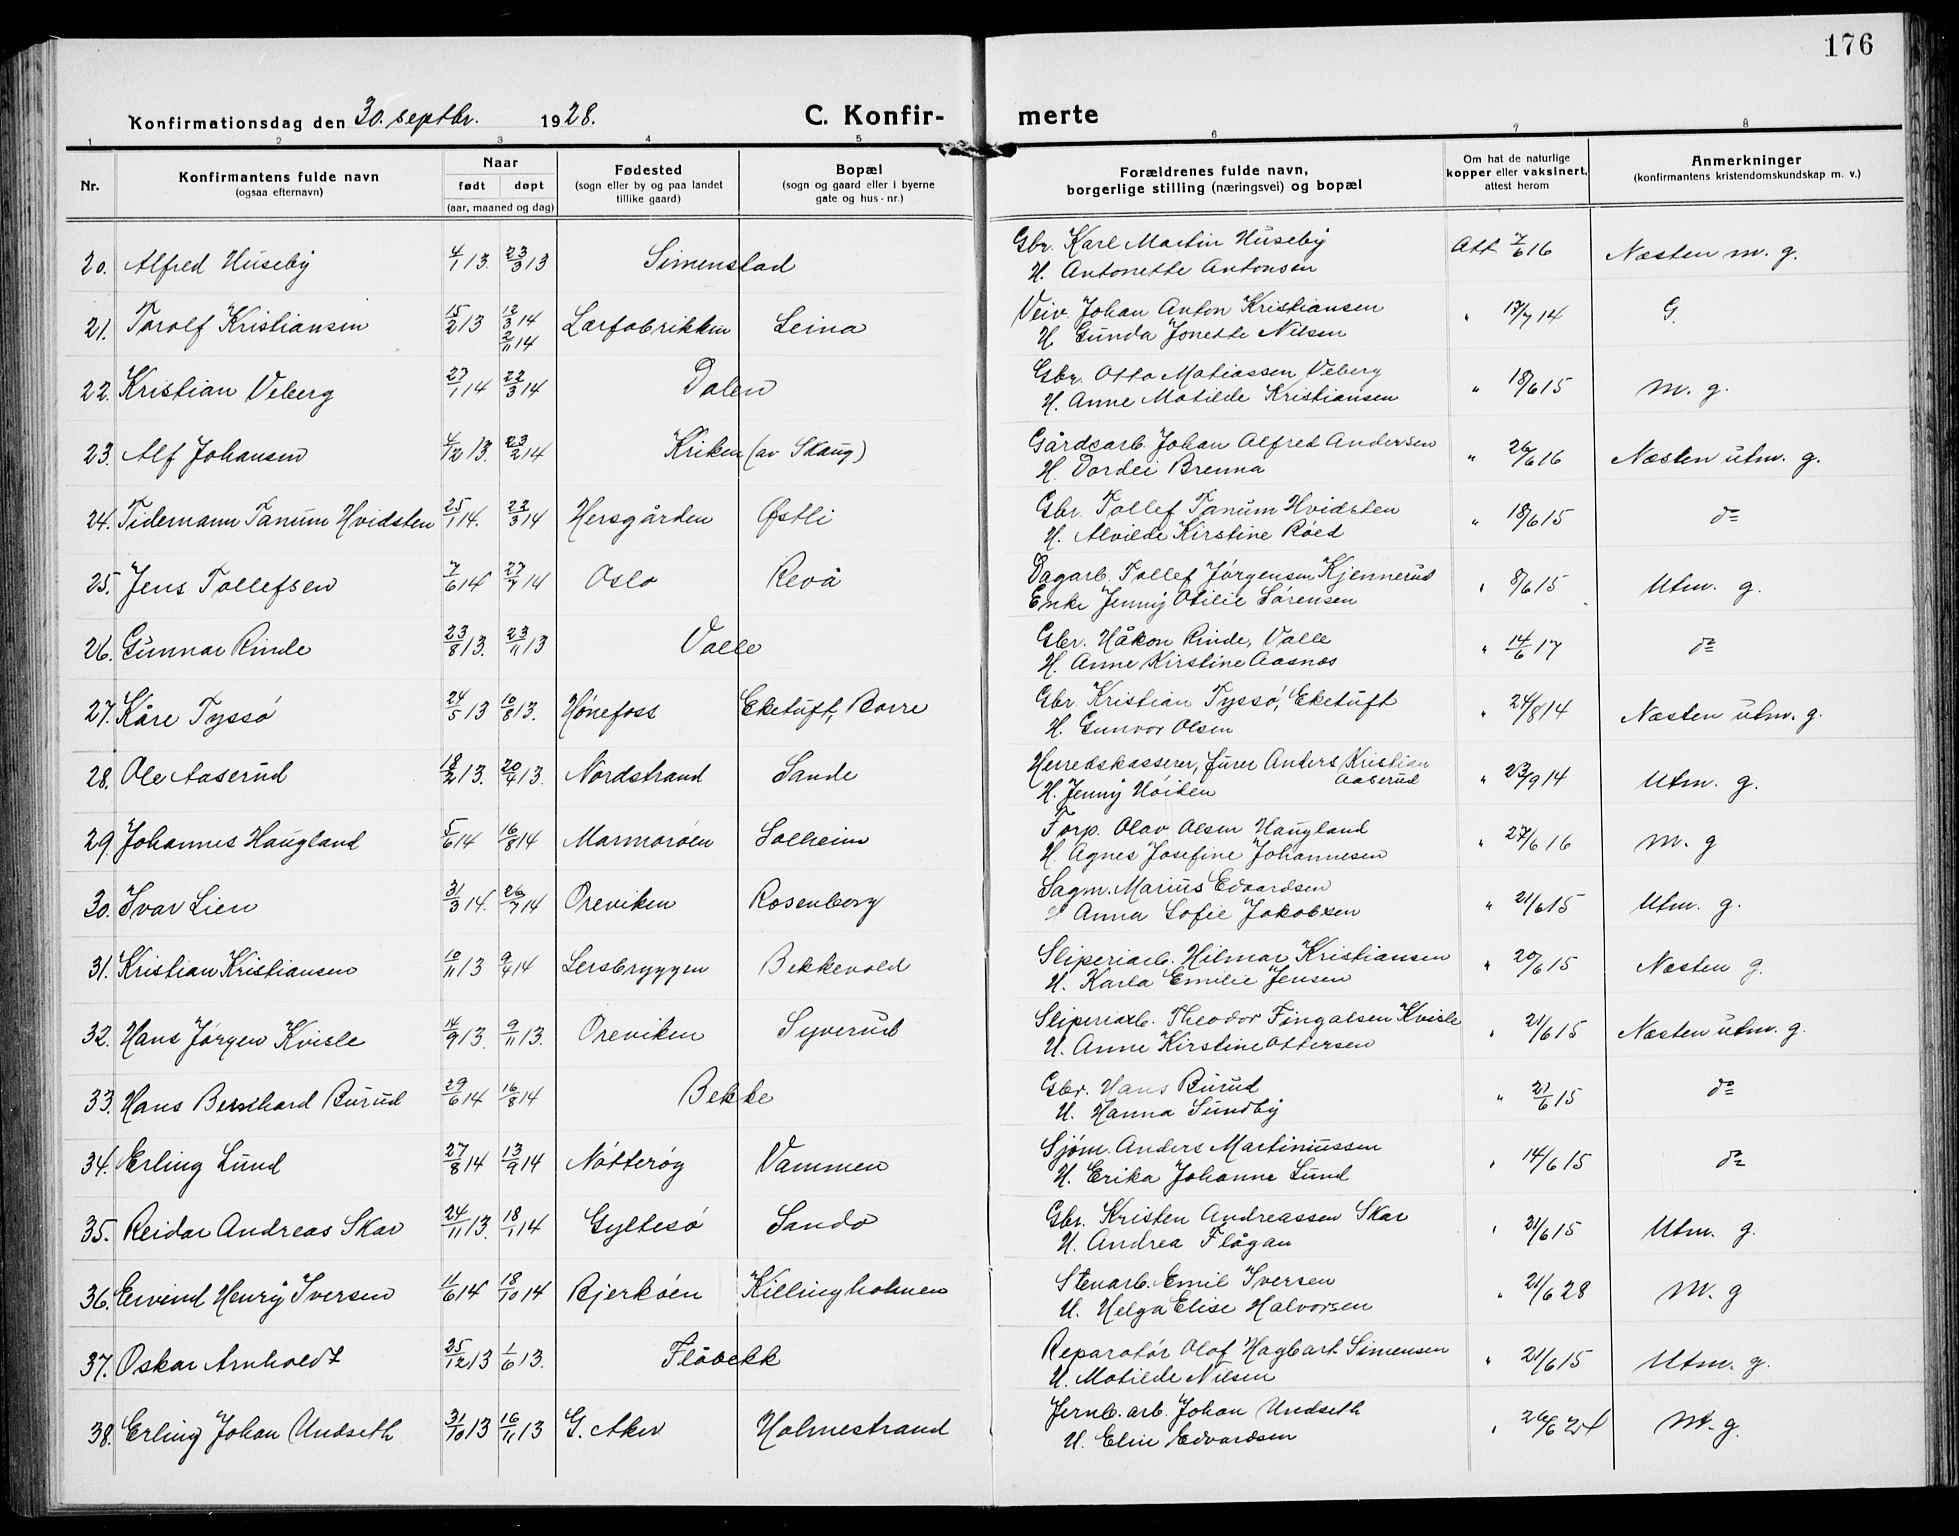 176
Konfirmationsdag den 30. septbr. 1928. C. Konfir- merte
1 2 3 4 5 6 7 8
Nr. Konfirmantens fulde navn (ogsaa efternavn) Naar født døpt (aar, maaned og dag) Fødested (sogn eller by og paa landet tillike gaard) Bopæl (sogn og gaard eller i byerne gate og hus-nr.) Forældrenes fulde navn, borgerlige stilling (næringsvei) og bopæl Om hat de naturlige kopper eller vaksinert, attest herom Anmerkninger (konfirmantens kristendomskundskap m. v.)
20. Alfred Huseby 4/1 13. 23/3 13 Simenstad Gbr. Karl Martin Huseby Att 7/6 16 Næsten m. g.
H. Antonette Antonsen
21. Torolf Kristiansen 15/2 13 12/3 14 Lærfabrikken Leina Veiv. Johan Anton Kristiansen " 17/7 14 G.
2/11 14 H. Gunda Jonette Nilsen
22. Kristian Veberg 27/1 14 22/3 14 Dalen Gbr. Otto Matiassen Veberg " 18/6 15 M. g.
H. Anne Matilde Kristiansen
23. Alf Johansen 4/12 13. 23/2 14 Kirken (av Skaug) Gårdsarb. Johan Alfred Andersen " 26/6 16 Næsten utm. g.
H. Dordei Brenna
24. Tidemann Tanum Hvidsten 25/1 14. 22/3 14 Hersgården Østli Gbr. Tollef Tanum Hvidsten " 18/6 15 do
H. Alvilde Kirstine Røed
25. Jens Tollefsen 7/6 14 27/7 14 Oslo Revå Dagarb. Tollef Jørgensen Kjennerud " 8/6 15 Utm. g.
Enke Jenny Otilie Sørensen
26. Gunnar Rinde 23/8 13. 23/11 13 Valle Gbr. Håkon Rinde, Valle " 14/6 17 do
H. Anne Kirstine Aasnæs
27. Kåre Tyssø 24/5 13 10/8 13. Hønefoss Eketuft, Borre Gbr. Kristian Tyssø, Eketuft " 24/8 14 Næsten utm. g.
H. Gunvor Olsen
28. Ole Aaserud 18/2 13. 20/4 13. Nordstrand Sande Herredskasserer, furer Anders Kristian Aaserud " 23/9 14 Utm. g.
H. Jenny Høiten
29. Johannes Haugland 5/6 14 16/8 14 Marmorøen Solheim Forp. Olav Olsen Haugland " 27/6 16 M. g
H. Agnes Josefine Johannesen
30. Ivar Lien 31/3 14. 26/7 14 Oreviken Rosenborg Sagm. Marius Edvardsen " 21/6 15 Utm. g.
H Anna Sofie Jakobsen
31. Kristian Kristiansen 10/11 13 9/4 14 Lersbryggen Bekkevold Sliperiarb. Hilmar Kristiansen " 20/6 15 Næsten g.
H. Karla Emilie Jensen
32. Hans Jørgen Kvisle 14/9 13. 9/11 13. Oreviken Syverud Sliperiarb. Theodor Fingalsen Kvisle " 21/6 15 Næsten utm. g.
H. Anne Kirstine Ottersen
33. Hans Bernhard Burud 29/6 14 16/8 14 Bekke Gbr. Hans Burud " 21/6 15 do
H. Hanna Sundby
34. Erling Lund 27/8 14 13/9 14 Nøtterøy Vammen Sjøm. Anders Martiniussen " 14/6 15 do
H. Erika Johanne Lund
35. Reidar Andreas Skar 24/11 13. 18/1 14 Gyltesø Sando Gbr. Kristen Andreassen Skar " 21/6 15 Utm. g.
H. Andrea Flågan
36. Eivind Henry Iversen 11/6 14 18/10 14 Bjerkøen Killingholmen Stenarb. Emil Iversen " 21/6 28 M. g
H. Helga Elise Halvorsen
37. Oskar Arnholdt 25/12 13 1/6 13. Flåbekk Reparatør Olof Hagbart Simensen " 21/6 15 Utm. g.
H. Matilde Nilsen
38. Erling Johan Undseth 31/10 13 16/11 13 G. Aker Holmestrand Jernb. arb. Johan Undseth " 26/6 24 M. g.
H. Elin Edvardsen